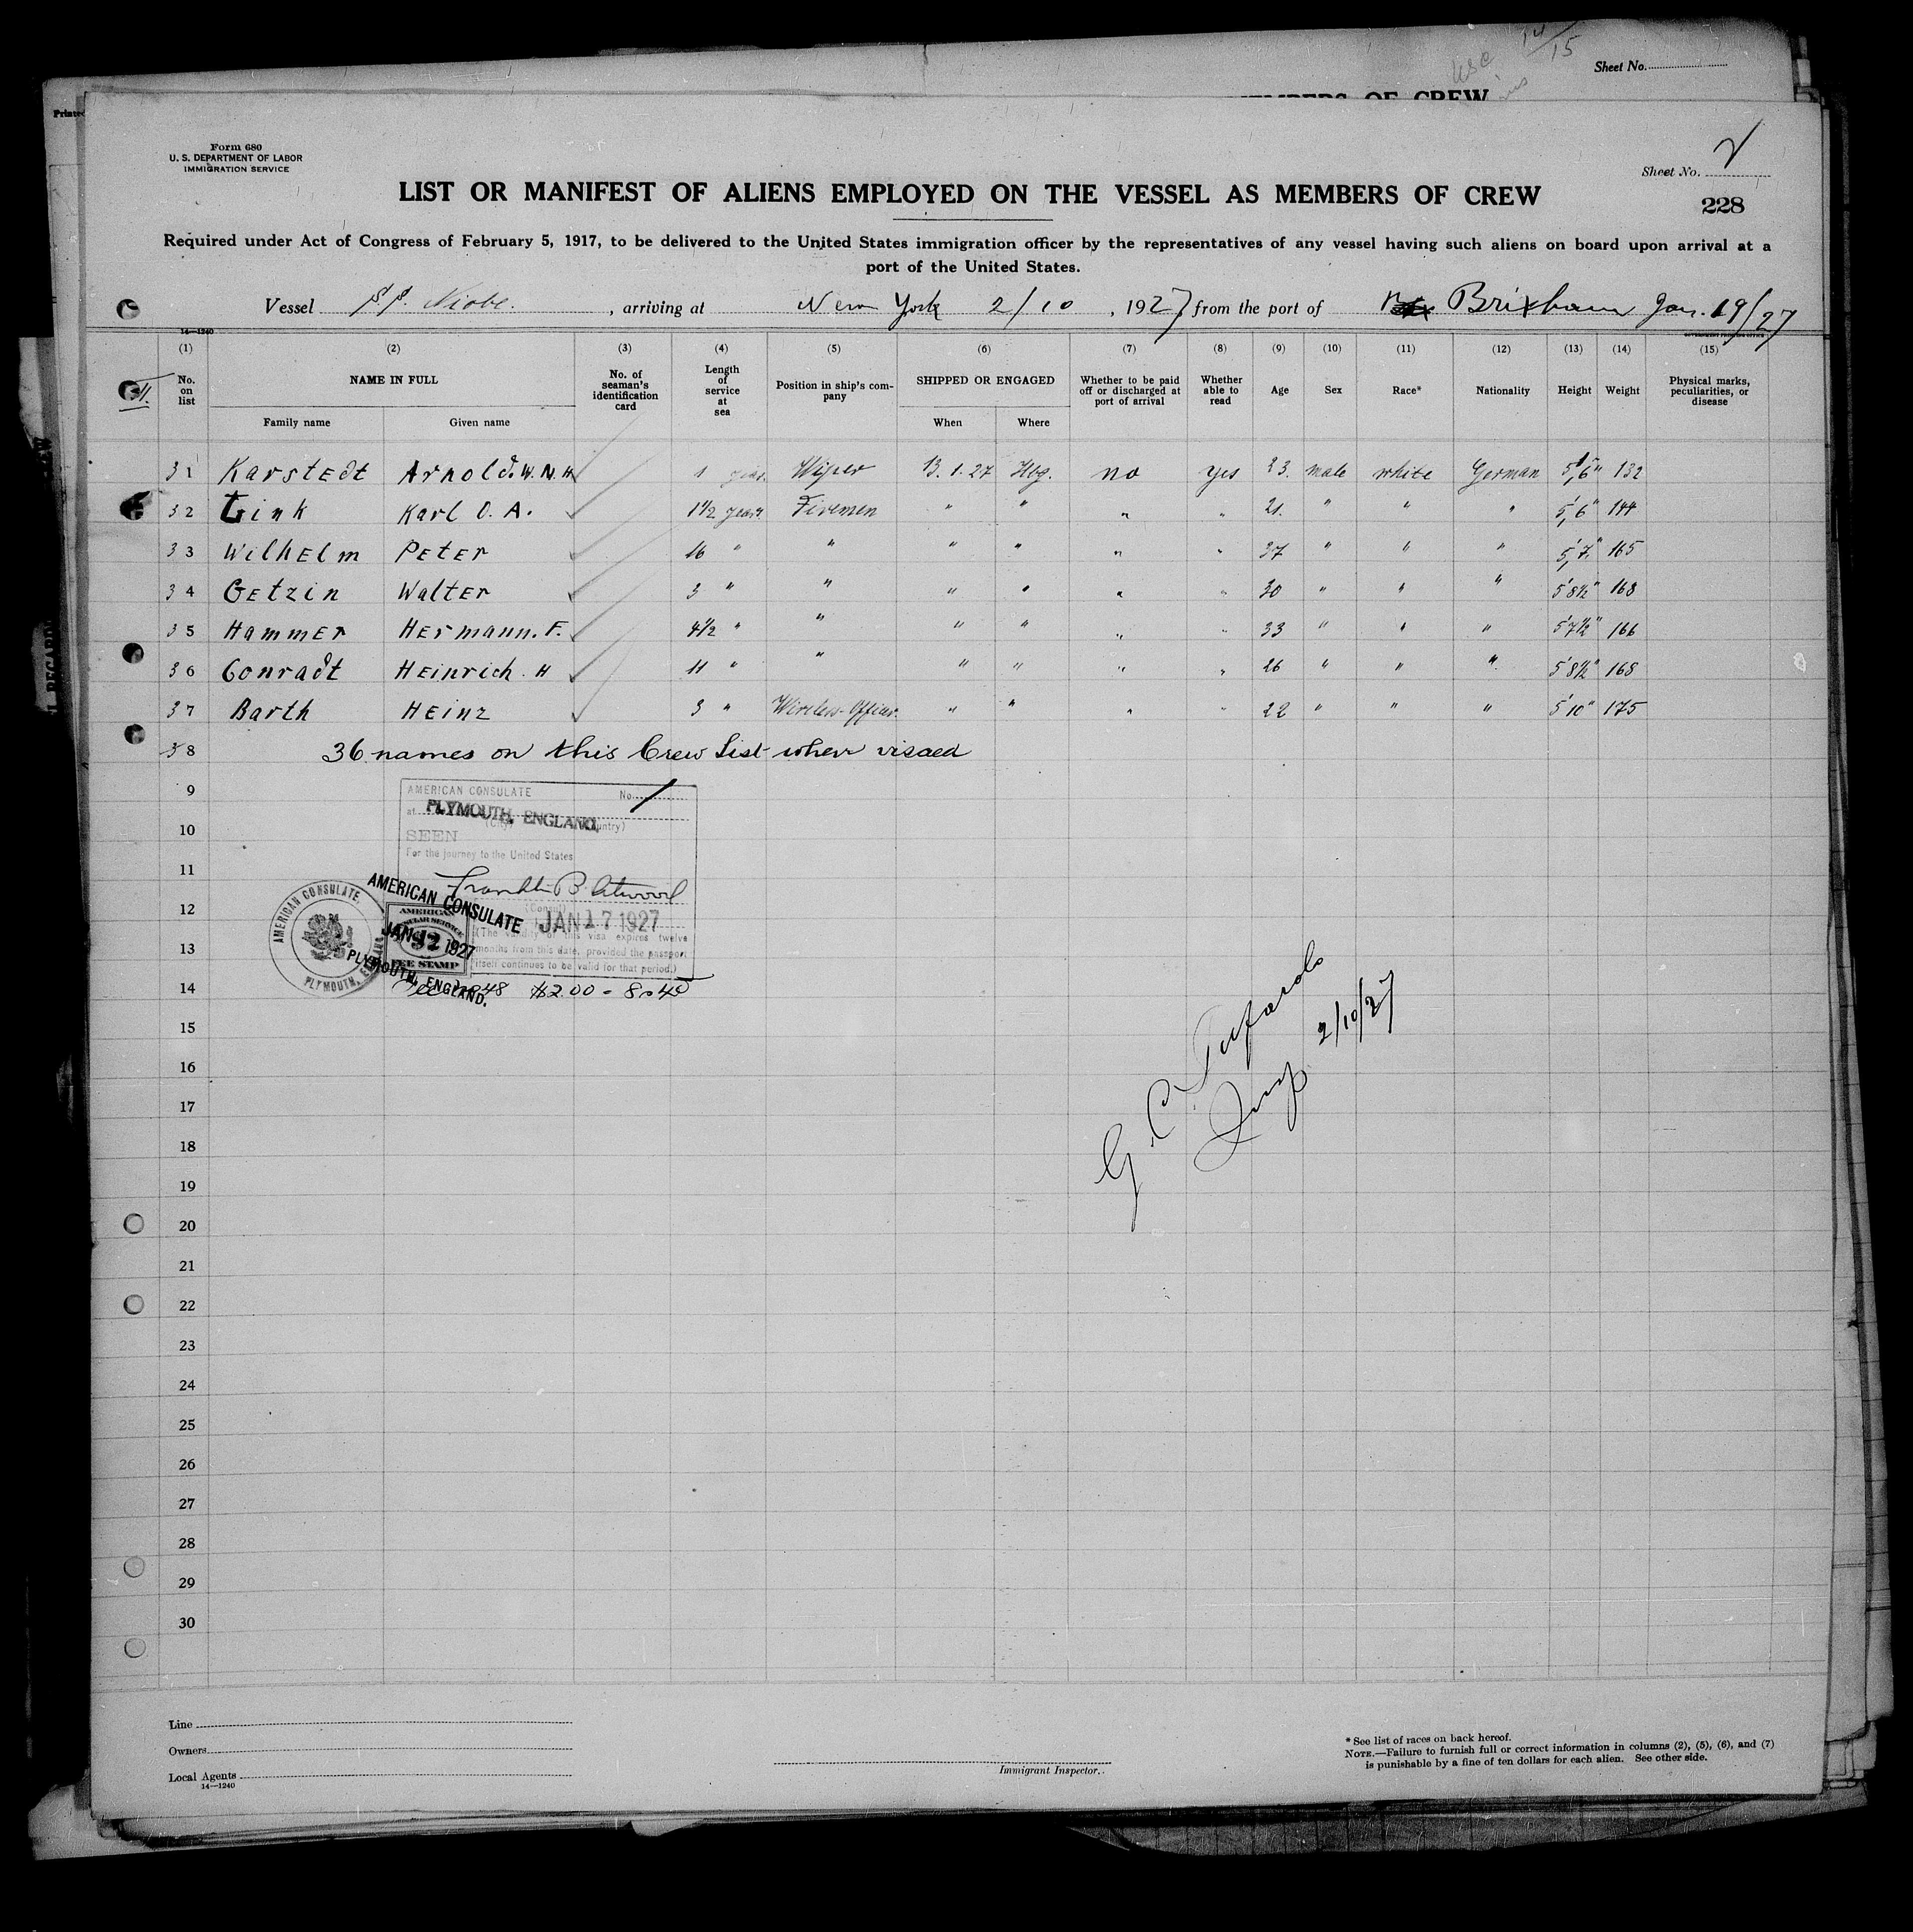 14/15
Sheet No.
MEMBERS OF CREW
Printed
Form 680
U. S. DEPARTMENT OF LABOR
IMMIGRATION SERVICE
Sheet No. 2
LIST OR MANIFEST OF ALIENS EMPLOYED ON THE VESSEL AS MEMBERS OF CREW
228
Required under Act of Congress of February 5, 1917, to be delivered to the United States immigration officer by the representatives of any vessel having such aliens on board upon arrival at a
port of the United States.
Vessel S.S. Niobe. , arriving at New York 2/10 , 1927, from the port of Brixham Jan. 19/27
14—1240
(1) (2) (3) (4) (5) (6) (7) (8) (9) (10) (11) (12) (13) (14) (15)
No. on list NAME IN FULL No. of seaman's identification card Length of service at sea Position in ship's company SHIPPED OR ENGAGED Whether to be paid off or discharged at port of arrival Whether able to read Age Sex Race* Nationality Height Weight Physical marks, peculiarities, or disease
Family name Given name When Where
31 Karstedt Arnold.W.N.H 1 year. Wiper 13.1.27 Hbg. no yes 23. male white German 5'6" 132
32 Link Karl O. A. 1 1/2 years Firemen " " " " 21. " " " 5'6" 144
33 Wilhelm Peter 16 " " " " " " 37 " " " 5'7" 165
34 Getzin Walter 3 " " " " " " 30 " " " 5'8½" 168
35 Hammer Hermann. F. 4½ " " " " " " 33 " " " 5'7½" 166
36 Conradt Heinrich. H 11 " " " " " " 26 " " " 5'8½" 168
37 Barth Heinz 3 " Wireless-Officer. " " " " 22 " " " 5'10" 175
38 36 names on this Crew List when visaed
9
AMERICAN CONSULATE No. 1
at PLYMOUTH, ENGLAND.
10
SEEN
For the journey to the United States
11
Franklin B. Atwood
AMERICAN CONSULATE
(Consul)
12
JAN 17 1927
AMERICAN CONSULATE. PLYMOUTH, ENGLAND
AMERICAN CONSULAR SERVICE
FEE STAMP
JAN 17 1927
PLYMOUTH, ENGLAND.
(The validity of this visa expires twelve
months from this date, provided the passport
itself continues to be valid for that period.)
13
14 48 $2.00 = 8s4d
15
16
17
18
19
20
21
22
23
24
25
26
27
28
29
30
G. C. Tufarolo
Insp. 2/10/27
Line
Owners
Local Agents
14—1240
Immigrant Inspector.
* See list of races on back hereof.
NOTE.—Failure to furnish full or correct information in columns (2), (5), (6), and (7)
is punishable by a fine of ten dollars for each alien. See other side.